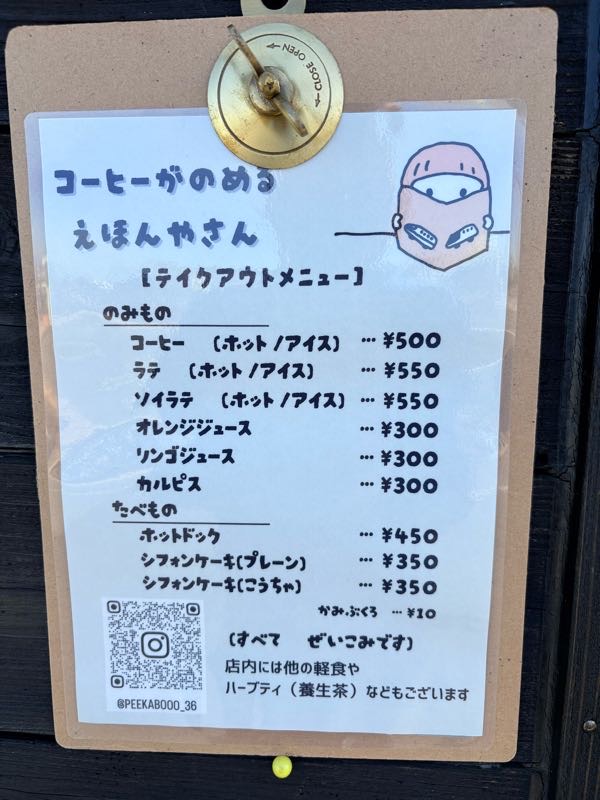 CLOSE OPEN
コーヒーがのめる
えほんやさん
[テイクアウトメニュー]
のみもの
コーヒー (ホット/アイス) … ¥500
ラテ (ホット/アイス) … ¥550
ソイラテ (ホット/アイス) … ¥550
オレンジジュース … ¥300
リンゴジュース … ¥300
カルピス … ¥300
たべもの
ホットドック … ¥450
シフォンケーキ(プレーン) … ¥350
シフォンケーキ(こうちゃ) … ¥350
かみぶくろ … ¥10
(すべて ぜいこみです)
店内には他の軽食や
ハーブティ（養生茶）などもございます
@PEEKABOOO_36